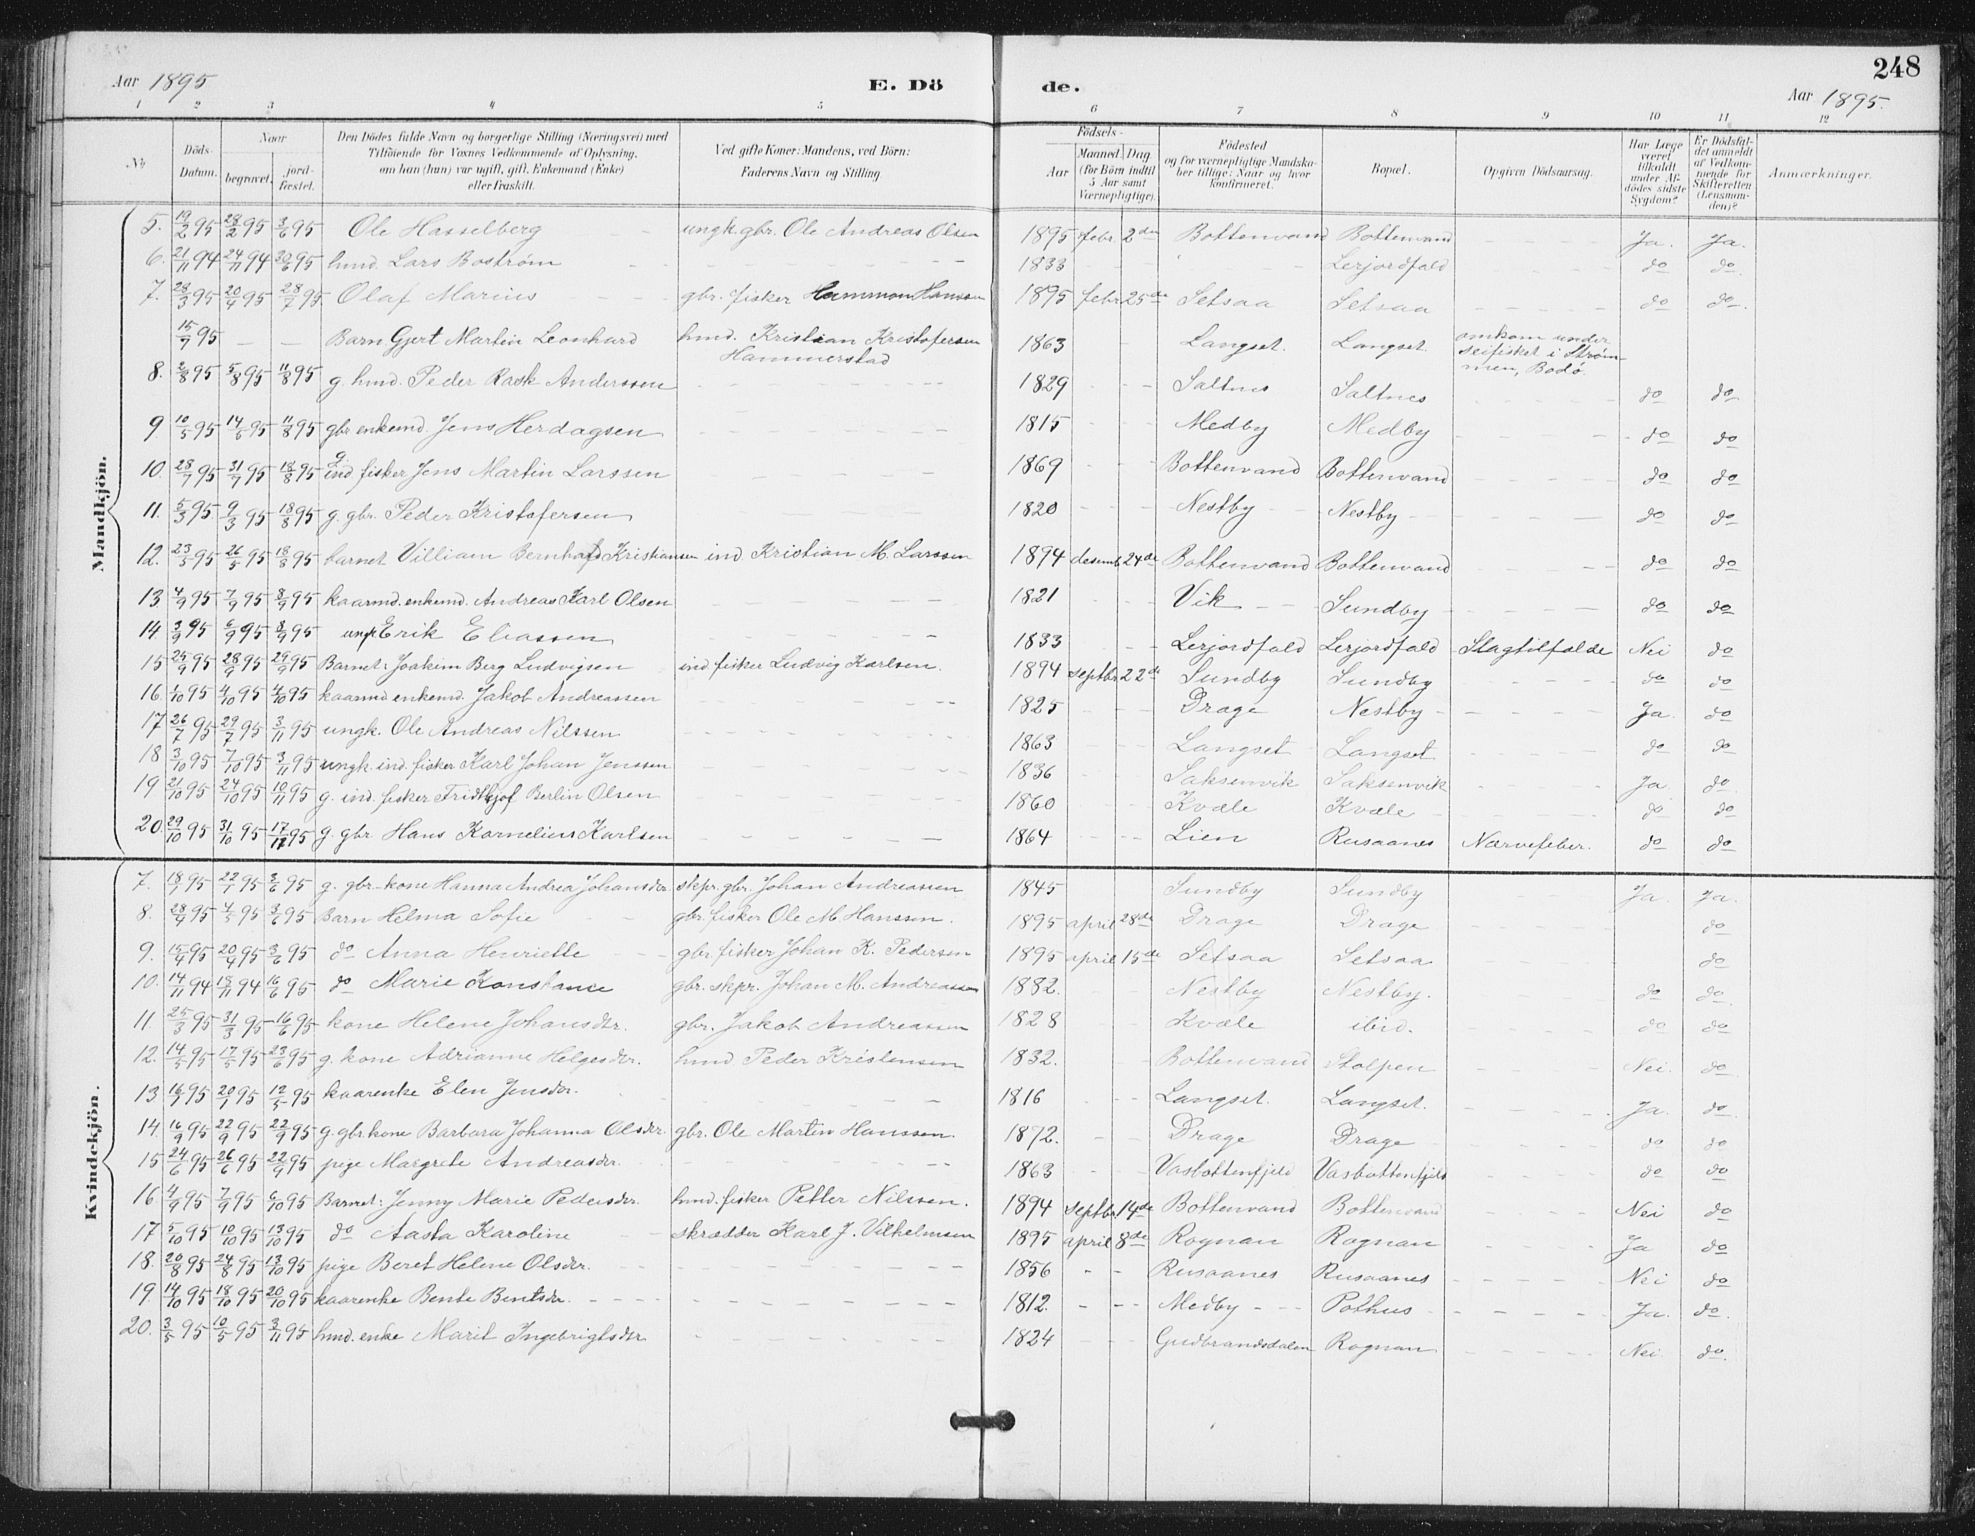 248
Aar 1895 E. Dö de. Aar 1895.
1 2 3 4 5 6 7 8 9 10 11 12
No Döds-Datum. Naar begravet. jordfæstet. Den Dödes fulde Navn og borgerlige Stilling (Næringsvei) med Tilföiende for Voxnes Vedkommende af Oplysning, om han (hun) var ugift, gift, Enkemand (Enke) eller fraskilt. Ved gifte Koner: Mandens, ved Börn: Faderens Navn og Stilling. Födsels- Aar Manned. Dag (for Börn indtil 5 Aar samt Værnepligtige). Födested og for værnepligtige Mandskaber tillige: Naar og hvor konfirmeret. Bopæl. Opgiven Dödsaarsag. Har Læge været tilkaldt under Afdödes sidste Sygdom? Er Dödsfaldet anmeldt af Vedkommende for Skifteretten (Lensmanden)? Anmærkninger.
Mandkjön.
5. 19/2 95 28/2 95 3/6 95 Ole Hasselberg ungk. gbr. Ole Andreas Olsen 1895 febr. 2den Bottenvand Bottenvand Ja. Ja.
6. 21/11 94 24/11 94 30/6 95 hmd. Lars Boström 1833 Lerjordfald do do
7. 28/3 95 20/4 95 28/7 95 Olaf Marius gbr. fisker Hammon Hanssen 1895 febr 25de Setsaa Setsaa do do
15/7 95 — — Barn Gjert Martin Leonhard hmd. Kristian Kristofersen Hammerstad 1863 Langset. Langset. omkom under seifisket i Strømmen, Bodö.
8. 2/8 95 5/8 95 11/8 95 g. hmd. Peder Rask Anderssen 1829 Saltnes Saltnes do do
9 10/5 95 14/5 95 11/8 95 gbr enkemd. Jens Herdagsen 1815 Medby Medby do do
10. 28/7 95 31/7 95 18/8 95 g. ind. fisker Jens Martin Larssen 1869 Bottenvand Bottenvand do do
11. 5/3 95 9/3 95 18/8 95 g. gbr. Peder Kristofersen 1820 Nestby Nestby do do
12. 23/5 95 26/5 95 18/8 95 barnet Villiam Bernhard Kristiansen ind Kristian M. Larssen 1894 desemb. 24de Bottenvand Bottenvand do do
13 4/9 95 7/9 95 8/9 95 kaarmd. enkemd. Andreas Karl Olsen 1821 Vik Sundby do do
14. 3/9 95 6/9 95 8/9 95 Erik Eliassen 1833 Lerjordfald Lerjordfald Slagtilfælde Nei do
15 25/9 95 28/9 95 29/9 95 Barnet: Joakim Berg Ludvigsen ind fisker Ludvig Karlsen. 1894 septbr. 22de Sundby Sundby do do
16. 1/10 95 4/10 95 4/10 95 kaarmd enkemd. Jakob Andreassen 1825 Drage Nestby Ja. do
17 26/7 95 29/7 95 3/11 95 ungk. Ole Andreas Nilssen 1863 Langset Langset do do
18 3/10 95 7/10 95 3/11 95 ungk. ind. fisker Karl Johan Jenssen 1836 Saksenvik Saksenvik Ja do
19 21/10 95 24/10 95 10/11 95 g. ind. fisker Fridthjof Berlin Olsen 1860 Kvæle Kvæle do do
20. 29/10 95 31/10 95 17/11 95 g. gbr. Hans Kornelius Karlsen 1864 Lien Rusaanes Nærvefeber. do do
Kvindekjön.
7. 18/1 95 22/1 95 3/6 95 g. gbr. kone Hanna Andrea Johansdtr. skpr. gbr. Johan Andreassen 1845 Sundby Sundby Ja. Ja.
8. 28/4 95 4/5 95 3/6 95 Barn Helma Sofie gbr. fisker Ole M. Hanssen. 1895 april 28de Drage Drage do
9. 15/4 95 20/4 95 3/6 95 do Anna Henriette gbr. fisker Johan K. Pedersen 1895 april 15de Setsaa Setsaa do
10. 14/11 94 18/11 94 16/6 95 do Marie Konstance gbr. skpr. Johan M. Andreassen 1882. Nestby Nestby. do do
11. 25/3 95 31/3 95 16/6 95 kone Helene Johansdtr. gbr. Jakob Andreassen 1828 Kvæle ibid. do do
12. 14/5 95 17/5 95 23/6 95 g. kone Adrianne Helgesdtr. hmd Peder Kristensen 1832. Bottenvand Stolpen Nei. do
13 16/1 95 20/1 95 12/5 95 kaarenke Elen Jensdtr. 1816 Langset. Langset. Ja. do.
14. 16/9 95 22/9 95 22/9 95 g. gbr kone Barbara Johanna Olsdtr. gbr. Ole Martin Hanssen. 1872. Drage Drage do do
15 24/6 95 26/6 95 22/9 95 pige Margrete Andreasdtr. 1863 Vasbottenfjeld Vasbottenfjeld do do
16 4/9 95 7/9 95 6/10 95 Barnet: Jenny Marie Pedersdtr. hmd. fisker Petter Nilssen. 1894 septbr. 14de Bottenvand Bottenvand Nei do
17 5/10 95 10/10 95 13/10 95 do Aasta Karoline skrædder Karl J. Vilhelmsen 1895 april 8de Rognan Rognan Ja do
18. 20/8 95 24/8 95 13/10 95 pige Beret Helene Olsdtr. 1856 Rusaanes Rusaanes Nei do
19. 14/10 95 18/10 95 20/10 95 kaarenke Bente Bentsdtr. 1812. Medby Pothus Ja. do.
20. 3/5 95 10/5 95 3/11 95 hmd. enke Marit Ingebrigtsdtr 1824 Gudbrandsdalen Rognan Nei. do.